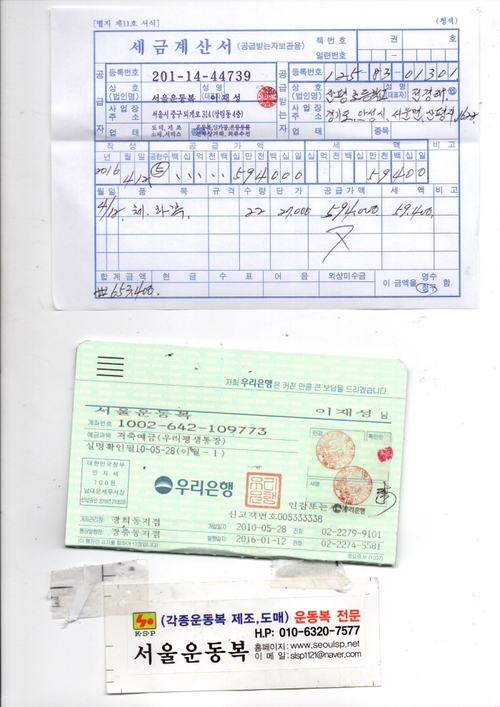 [별지 제11호 서식] (청색)
세금계산서 (공급받는자보관용) 책번호 권 호
일련번호
공급자 등록번호 201-14-44739 공급받는자 등록번호 125-83-01301
상호(법인명) 서울운동복 성명(대표자) 이재성 상호(법인명) 산평초등학교 성명(대표자)
사업장주소 서울시 중구 퇴계로 314 사업장주소 경기도 안성시 서운면
업태 도매, 제조 종목 운동복, 업태 종목
소매, 서비스
작성 공급가액 세액 비고
년 월 일 공란수 백 십 억 천 백 십 만 천 백 십 일 십 억 천 백 십 만 천 백 십 일
2016 4/12 5 594000 59400
월 일 품목 규격 수량 단가 공급가액 세액 비고
4/12 체. 22 27,000 594,000 59,400
합계금액 현금 수표 어음 외상미수금 이 금액을 영수 청구 함
₩653,400.
저희 우리은행은 커진 만큼 큰 보답을 드리겠습니다.
서울운동복 이재성 님
계좌번호 1002-642-109773
예금과목 저축예금(우리평생통장)
실명확인필10-05-28(이월-1)
대한민국정부
인지세
100원
남대문세무서장
우리은행
우리은행
인감또는
서명
신고객번호005333338
계좌관리점: 광희동지점 개설일자 2010-05-28 전화: 02-2279-9101
통장발행점: 장충동지점 발행일자 2016-01-12 전화: 02-2274-5581
K·S·P
(각종운동복 제조,도매) 운동복 전문
H.P: 010-6320-7577
서울운동복
홈페이지: www.seoulsp.net
이 메 일: slsp1121@naver.com